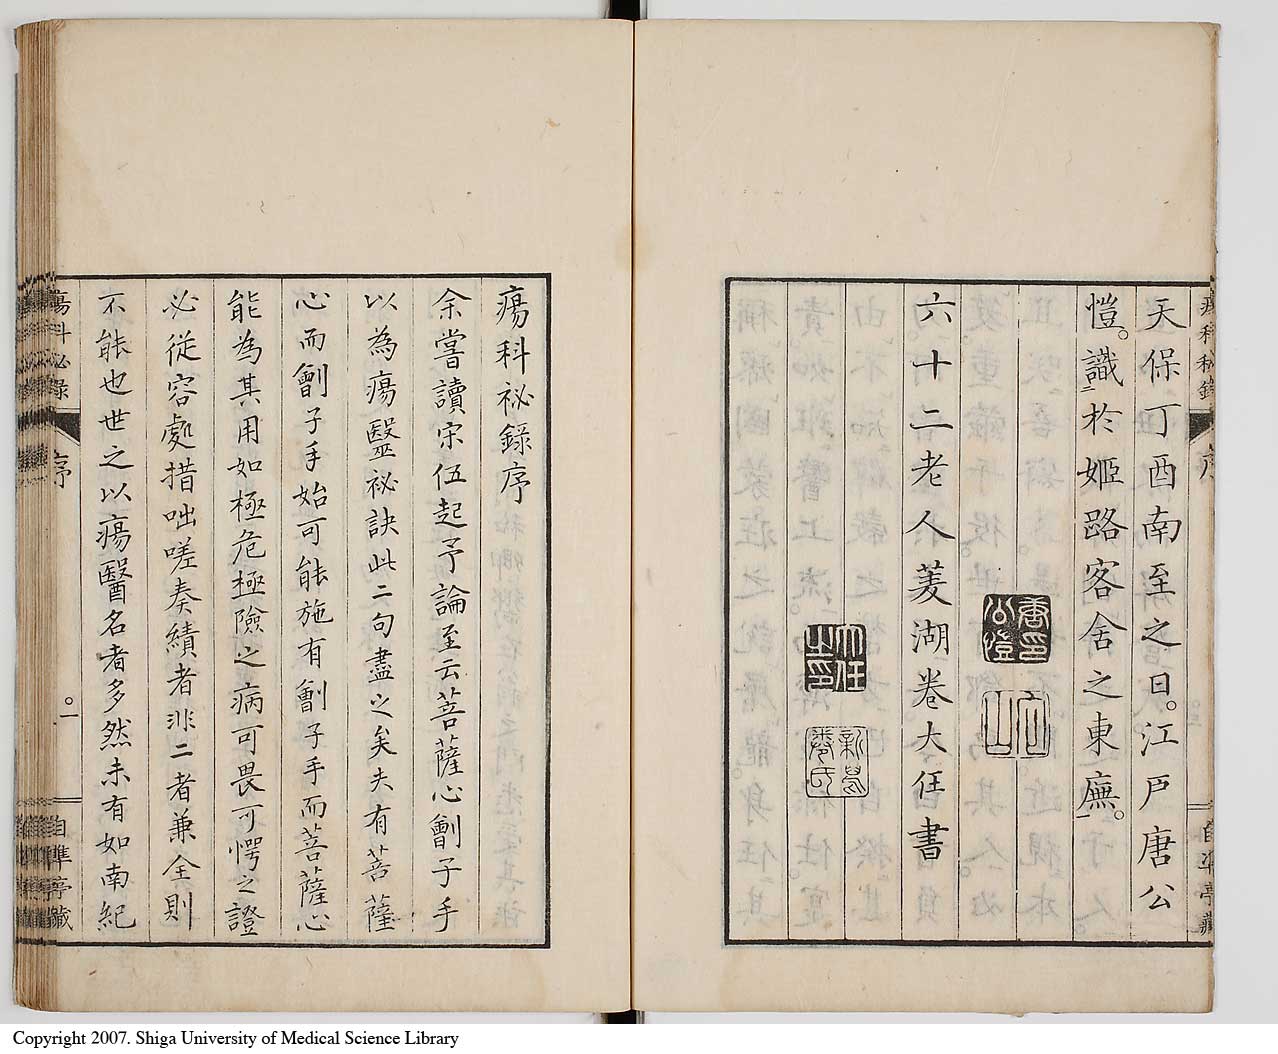 天保丁酉南至之日。江戸唐公
愷。識於姬路客舍之東廡。
六十二老人菱湖卷大任書
瘍科祕錄序
余嘗讀宋伍起予論至云菩薩心劊子手
以為瘍醫祕訣此二句盡之矣夫有菩薩
心而劊子手始可能施有劊子手而菩薩心
能為其用如極危極險之病可畏可愕之證
必從容處措咄嗟奏績者非二者兼全則
不能也世之以瘍醫名者多然未有如南紀
瘍科祕錄
序
一
自準亭藏
Copyright 2007. Shiga University of Medical Science Library